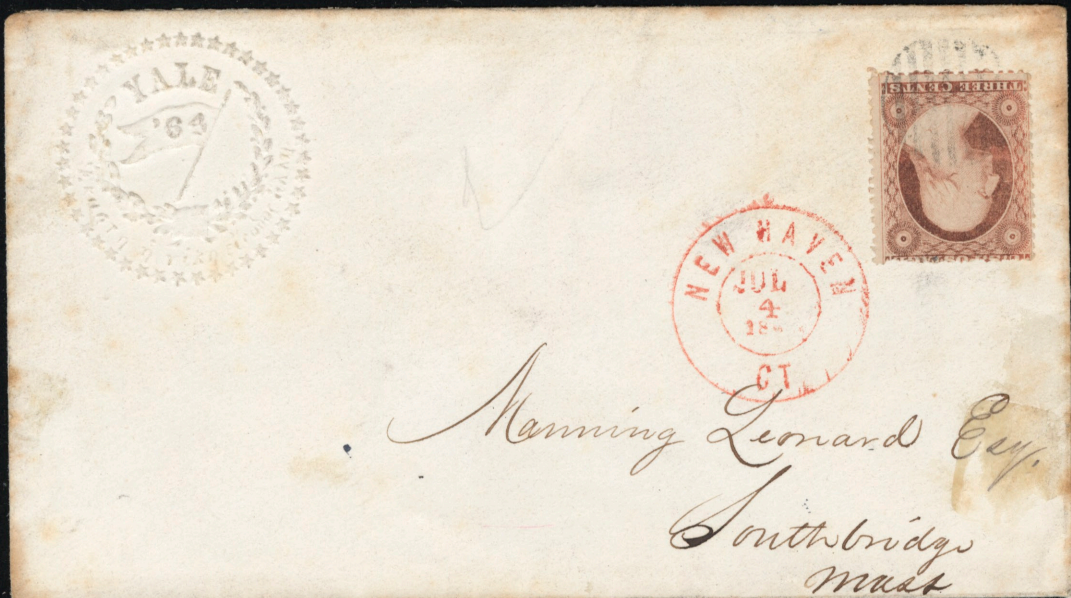 YALE
'64
THREE CENTS
NEW HAVEN
JUL
4
CT.
Manning Leonard Esq.
Southbridge
Mass